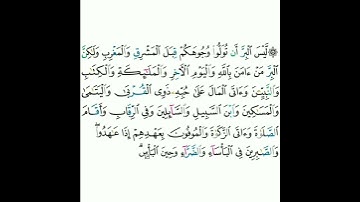 ۞ لَّيْسَ الْبِرَّ أَن تُوَلُّوا وُجُوهَكُمْ قِبَلَ الْمَشْرِقِ وَالْمَغْرِبِ وَلَٰكِنَّ
الْبِرَّ مَنْ ءَامَنَ بِاللَّهِ وَالْيَوْمِ الْآخِرِ وَالْمَلَٰٓئِكَةِ وَالْكِتَٰبِ
وَالنَّبِيِّنَ وَءَاتَى الْمَالَ عَلَىٰ حُبِّهِ ذَوِى الْقُرْبَىٰ وَالْيَتَٰمَىٰ
وَالْمَسَٰكِينَ وَابْنَ السَّبِيلِ وَالسَّآئِلِينَ وَفِى الرِّقَابِ وَأَقَامَ
الصَّلَوٰةَ وَءَاتَى الزَّكَوٰةَ وَالْمُوفُونَ بِعَهْدِهِمْ إِذَا عَٰهَدُوا ۖ
وَالصَّٰبِرِينَ فِى الْبَأْسَآءِ وَالضَّرَّآءِ وَحِينَ الْبَأْسِ ۗ